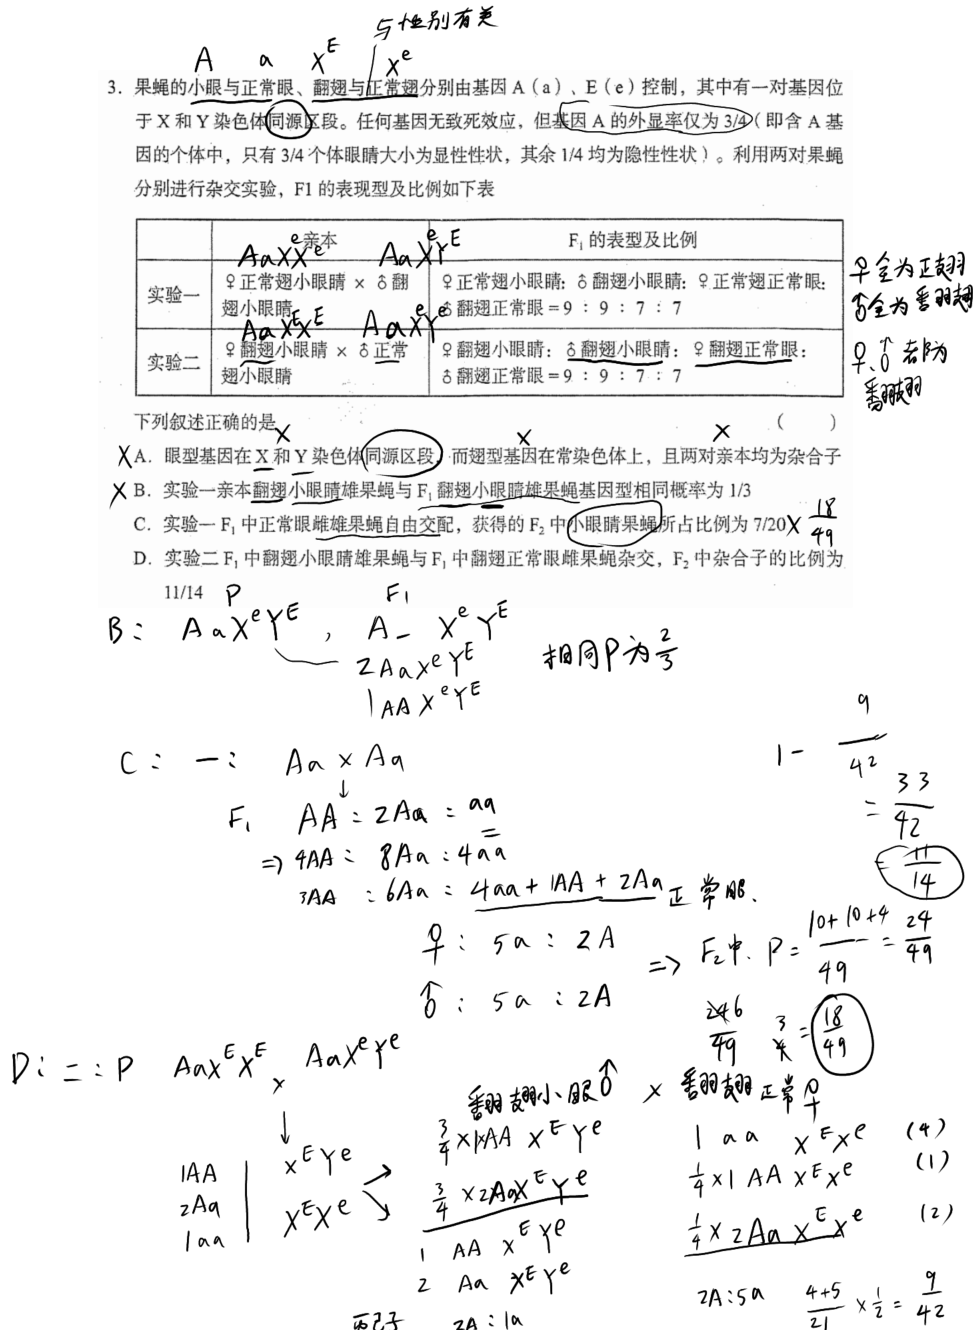 与性别有关
A a X^E X^e
3. 果蝇的小眼与正常眼、翻翅与正常翅分别由基因 A（a）、E（e）控制，其中有一对基因位
于 X 和 Y 染色体同源区段。任何基因无致死效应，但基因 A 的外显率仅为 3/4（即含 A 基
因的个体中，只有 3/4 个体眼睛大小为显性性状，其余 1/4 均为隐性性状）。利用两对果蝇
分别进行杂交实验，F1 的表现型及比例如下表
亲本 F₁ 的表型及比例
AaX^eX^e AaX^eY^E
实验一 ♀正常翅小眼睛 × ♂翻 ♀正常翅小眼睛：♂翻翅小眼睛：♀正常翅正常眼：
翅小眼睛 ♂翻翅正常眼＝9 : 9 : 7 : 7
AaX^EX^E AaX^eY^e
实验二 ♀翻翅小眼睛 × ♂正常 ♀翻翅小眼睛：♂翻翅小眼睛：♀翻翅正常眼：
翅小眼睛 ♂翻翅正常眼＝9 : 9 : 7 : 7
♀全为正翅
♂全为翻翅
♀、♂都为
翻翅
下列叙述正确的是 （ ）
X X X
X A. 眼型基因在 X 和 Y 染色体同源区段，而翅型基因在常染色体上，且两对亲本均为杂合子
X B. 实验一亲本翻翅小眼睛雄果蝇与 F₁ 翻翅小眼睛雄果蝇基因型相同概率为 1/3
C. 实验一 F₁ 中正常眼雌雄果蝇自由交配，获得的 F₂ 中小眼睛果蝇所占比例为 7/20 X 18/49
D. 实验二 F₁ 中翻翅小眼睛雄果蝇与 F₁ 中翻翅正常眼雌果蝇杂交，F₂ 中杂合子的比例为
11/14
P F₁
B: AaX^eY^E , A_ X^eY^E
2AaX^eY^E 相同P为2/3
1AAX^eY^E
C: 一: Aa × Aa
↓
F₁ AA : 2Aa : aa
⇒ 4AA : 8Aa : 4aa
3AA : 6Aa : 4aa + 1AA + 2Aa 正常眼.
♀: 5a : 2A
♂: 5a : 2A
⇒ F₂中. P = (10+10+4)/49 = 24/49
3/4 = 18/49
1 - 9/42
= 33/42
= 11/14
D: 二: P AaX^EX^E × AaX^eY^e
↓
1AA X^EY^e
2Aa X^EX^e
1aa
翻翅小眼♂ × 翻翅正常♀
3/4×1×AA X^EY^e 1 aa X^EX^e (4)
3/4×2AaX^EY^e 1/4×1 AA X^EX^e (1)
1 AA X^EY^e 1/4×2Aa X^EX^e (2)
2 Aa X^EY^e
配子 2A : 1a 2A:5a (4+5)/21 × 1/2 = 9/42